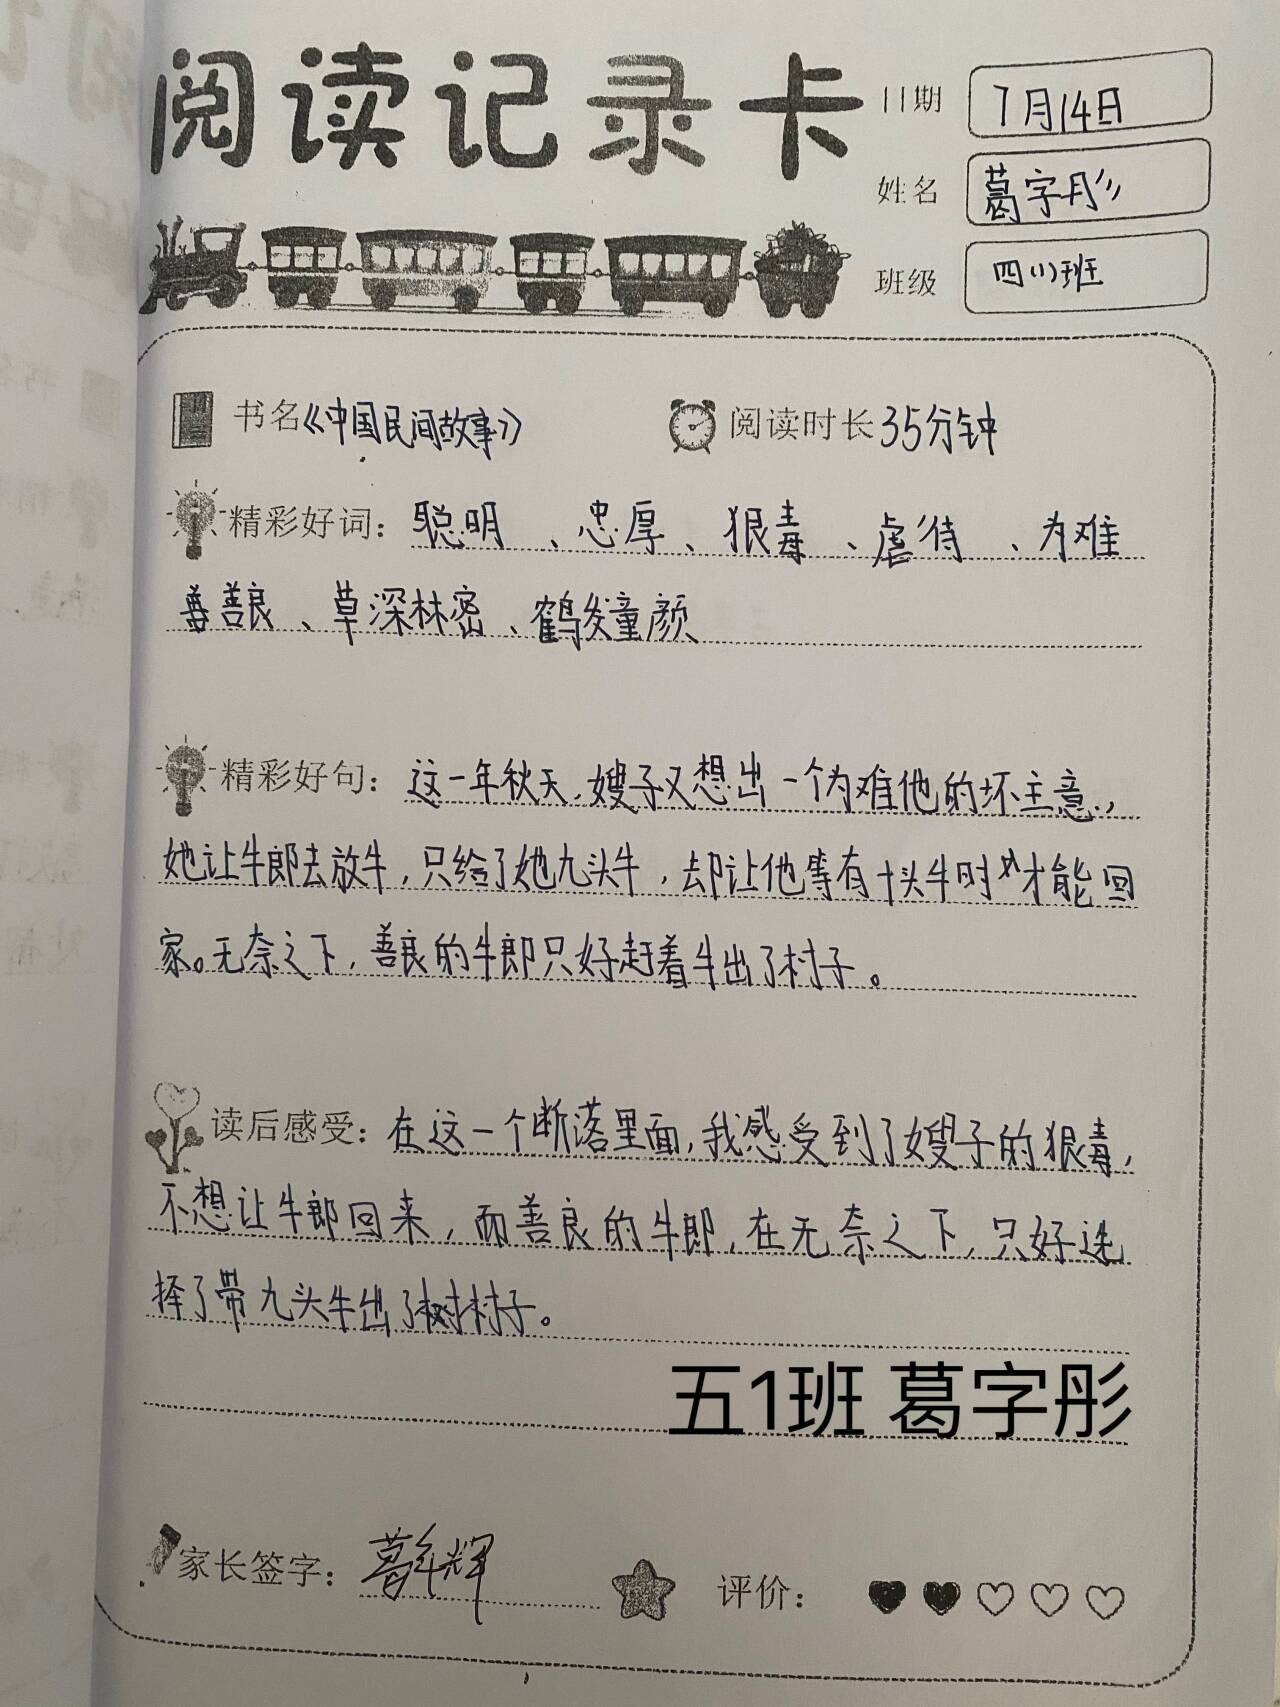 阅读记录卡
日期 7月14日
姓名 葛字彤
班级 四(1)班
书名《中国民间故事》 阅读时长 35分钟
精彩好词：聪明、忠厚、狠毒、虐待、为难
善善良、草深林密、鹤发童颜
精彩好句：这一年秋天，嫂子又想出一个为难他的坏主意，
她让牛郎去放牛，只给了她九头牛，却让他等有十头牛时才能回
家。无奈之下，善良的牛郎只好赶着牛出了村子。
读后感受：在这一个断落里面，我感受到了嫂子的狠毒，
不想让牛郎回来，而善良的牛郎，在无奈之下，只好选
择了带九头牛出了村子。
五1班 葛字彤
家长签字： 评价：